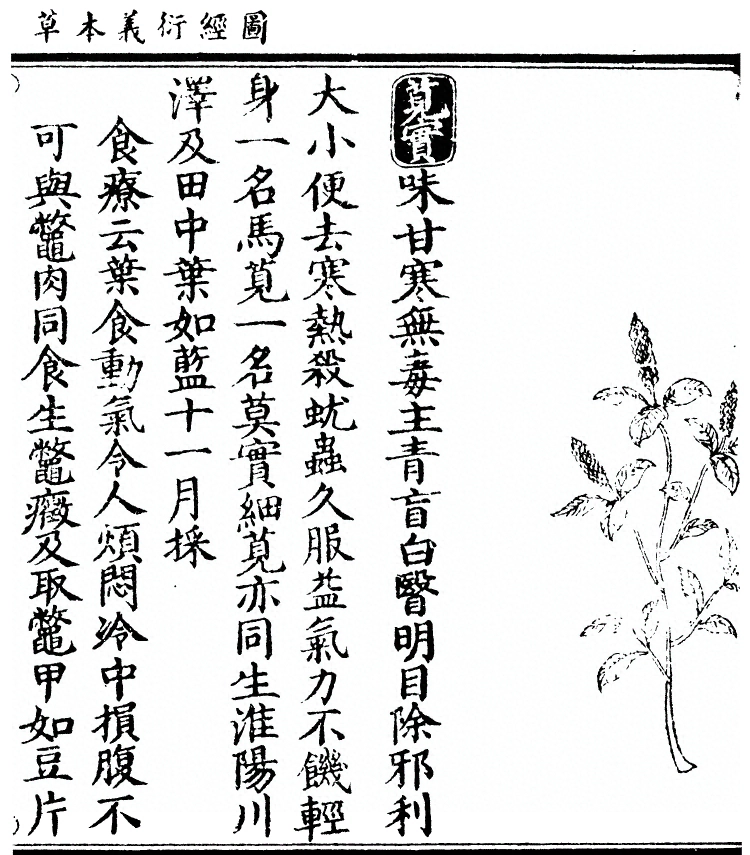 圖經衍義本草
莧實味甘寒無毒主青盲白翳明目除邪利
大小便去寒熱殺蚘蟲久服益氣力不饑輕
身一名馬莧一名莫實細莧亦同生淮陽川
澤及田中葉如藍十一月採
食療云葉食動氣令人煩悶冷中損腹不
可與鼈肉同食生鼈癥及取鼈甲如豆片